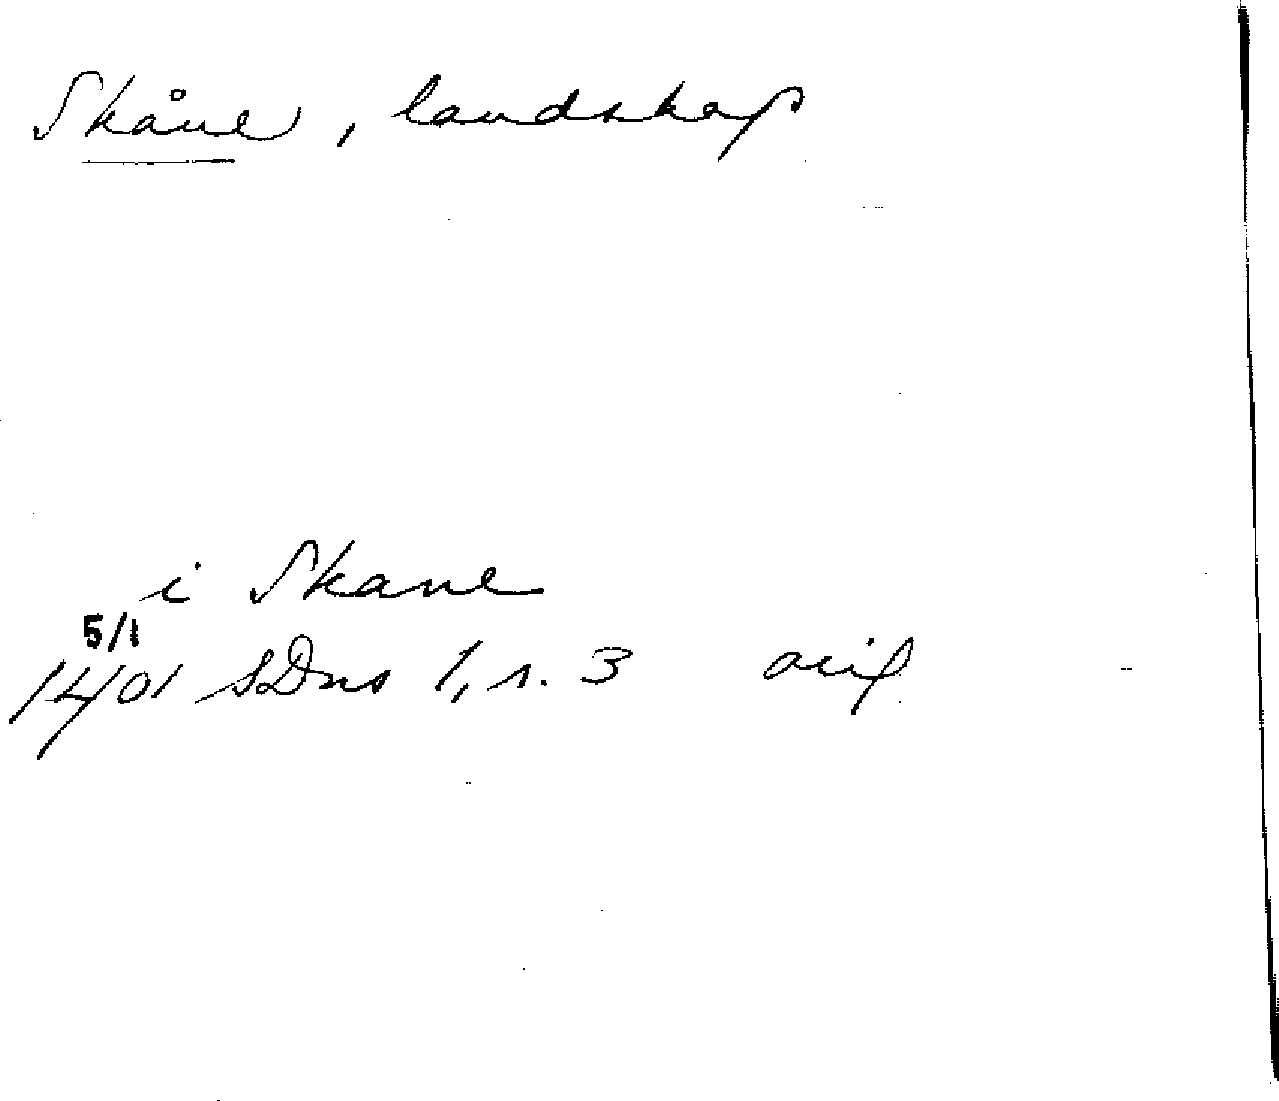 Skåne, landskap
i Skane
5/1
1401 SDns 1, s. 3 orig